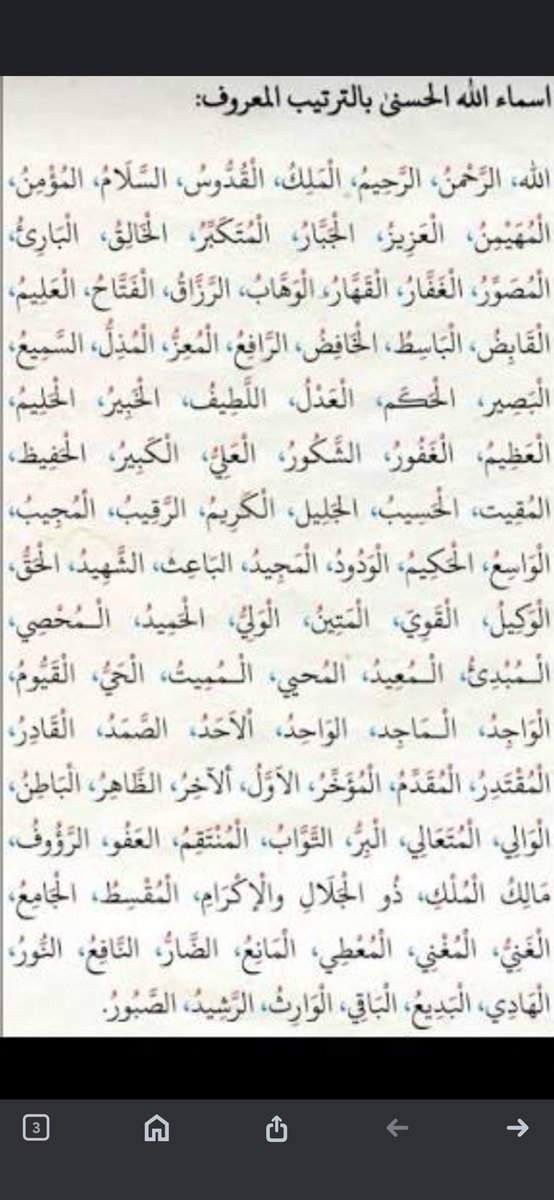 اسماء الله الحسنىٰ بالترتيب المعروف:
الله، الرَّحْمنُ، الرَّحِيمُ، الْمَلِكُ، الْقُدُّوسُ، السَّلَامُ، المُؤْمِنُ،
الْمُهَيْمِنُ، الْعَزِيزُ، الْجَبَّارُ، الْمُتَكَبِّرُ، الْخَالِقُ، الْبَارِئُ،
الْمُصَوِّرُ، الْغَفَّارُ، الْقَهَّارُ، الْوَهَّابُ، الرَّزَّاقُ، الْفَتَّاحُ، الْعَلِيمُ،
الْقَابِضُ، الْبَاسِطُ، الْخَافِضُ، الرَّافِعُ، الْمُعِزُّ، الْمُذِلُّ، السَّمِيعُ،
الْبَصِير، الْحَكَم، الْعَدْلُ، اللَّطِيفُ، الْخَبِيرُ، الْحَلِيمُ،
الْعَظِيمُ، الْغَفُورُ، الشَّكُورُ، الْعَلِيُّ، الْكَبِيرُ، الْحَفِيظ،
المُقِيت، الْحَسِيبُ، الجَلِيل، الْكَرِيمُ، الرَّقِيبُ، الْمُجِيبُ،
الْوَاسِعُ، الْحَكِيمُ، الْوَدُودُ، الْمَجِيدُ، البَاعِث، الشَّهِيدُ، الْحَقُّ،
الْوَكِيلُ، الْقَوِيّ، الْمَتِينُ، الْوَلِيُّ، الْحَمِيدُ، الْـمُحْصِي،
الْـمُبْدِئُ، الْـمُعِيدُ، المُحيي، الْـمُمِيتُ، الْحَيُّ، الْقَيُّومُ،
الْوَاجِدُ، الْـمَاجِد، الوَاحِدُ، اَلأَحَدُ، الصَّمَدُ، الْقَادِرُ،
الْمُقْتَدِرُ، الْمُقَدِّمُ، الْمُؤَخِّرُ، الأَوَّلُ، اَلآخِرُ، الظَّاهِرُ، الْبَاطِنُ،
الْوَالِي، الْمُتَعَالِي، الْبِرُّ، التَّوَّابُ، الْمُنْتَقِمُ، العَفُو، الرَّؤُوفُ،
مَالِكُ الْمُلْكِ، ذُو الْجَلَالِ والْإِكْرَامِ، الْمُقْسِطُ، الْجَامِعُ،
الْغَنِيُّ، الْمُغْنِي، الْمُعْطِي، الْمَانِعُ، الضَّارُّ، النَّافِعُ، النُّورُ،
الْهَادِي، الْبَدِيعُ، الْبَاقِي، الْوَارِثُ، الرَّشِيدُ، الصَّبُورُ.
3